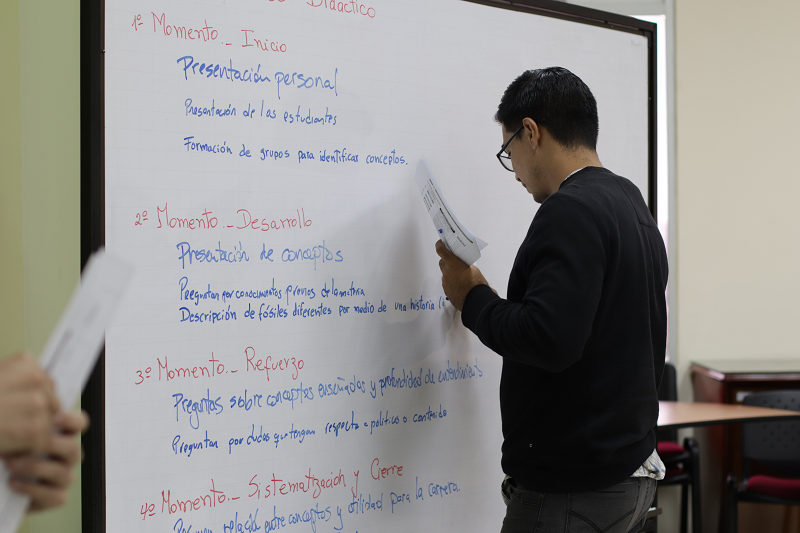 Didáctico
1º Momento._ Inicio
Presentación personal
Presentación de las estudiantes
Formación de grupos para identificar conceptos.
2º Momento._ Desarrollo
Presentación de conceptos
Preguntan por conocimientos previos de la materia
Descripción de fósiles diferentes por medio de una historia
3º Momento._ Refuerzo
Preguntas sobre conceptos enseñados y profundidad de
Preguntan por dudas que tengan respecto a contenido
4º Momento._ Sistematización y Cierre
relación entre conceptos y utilidad para la carrera